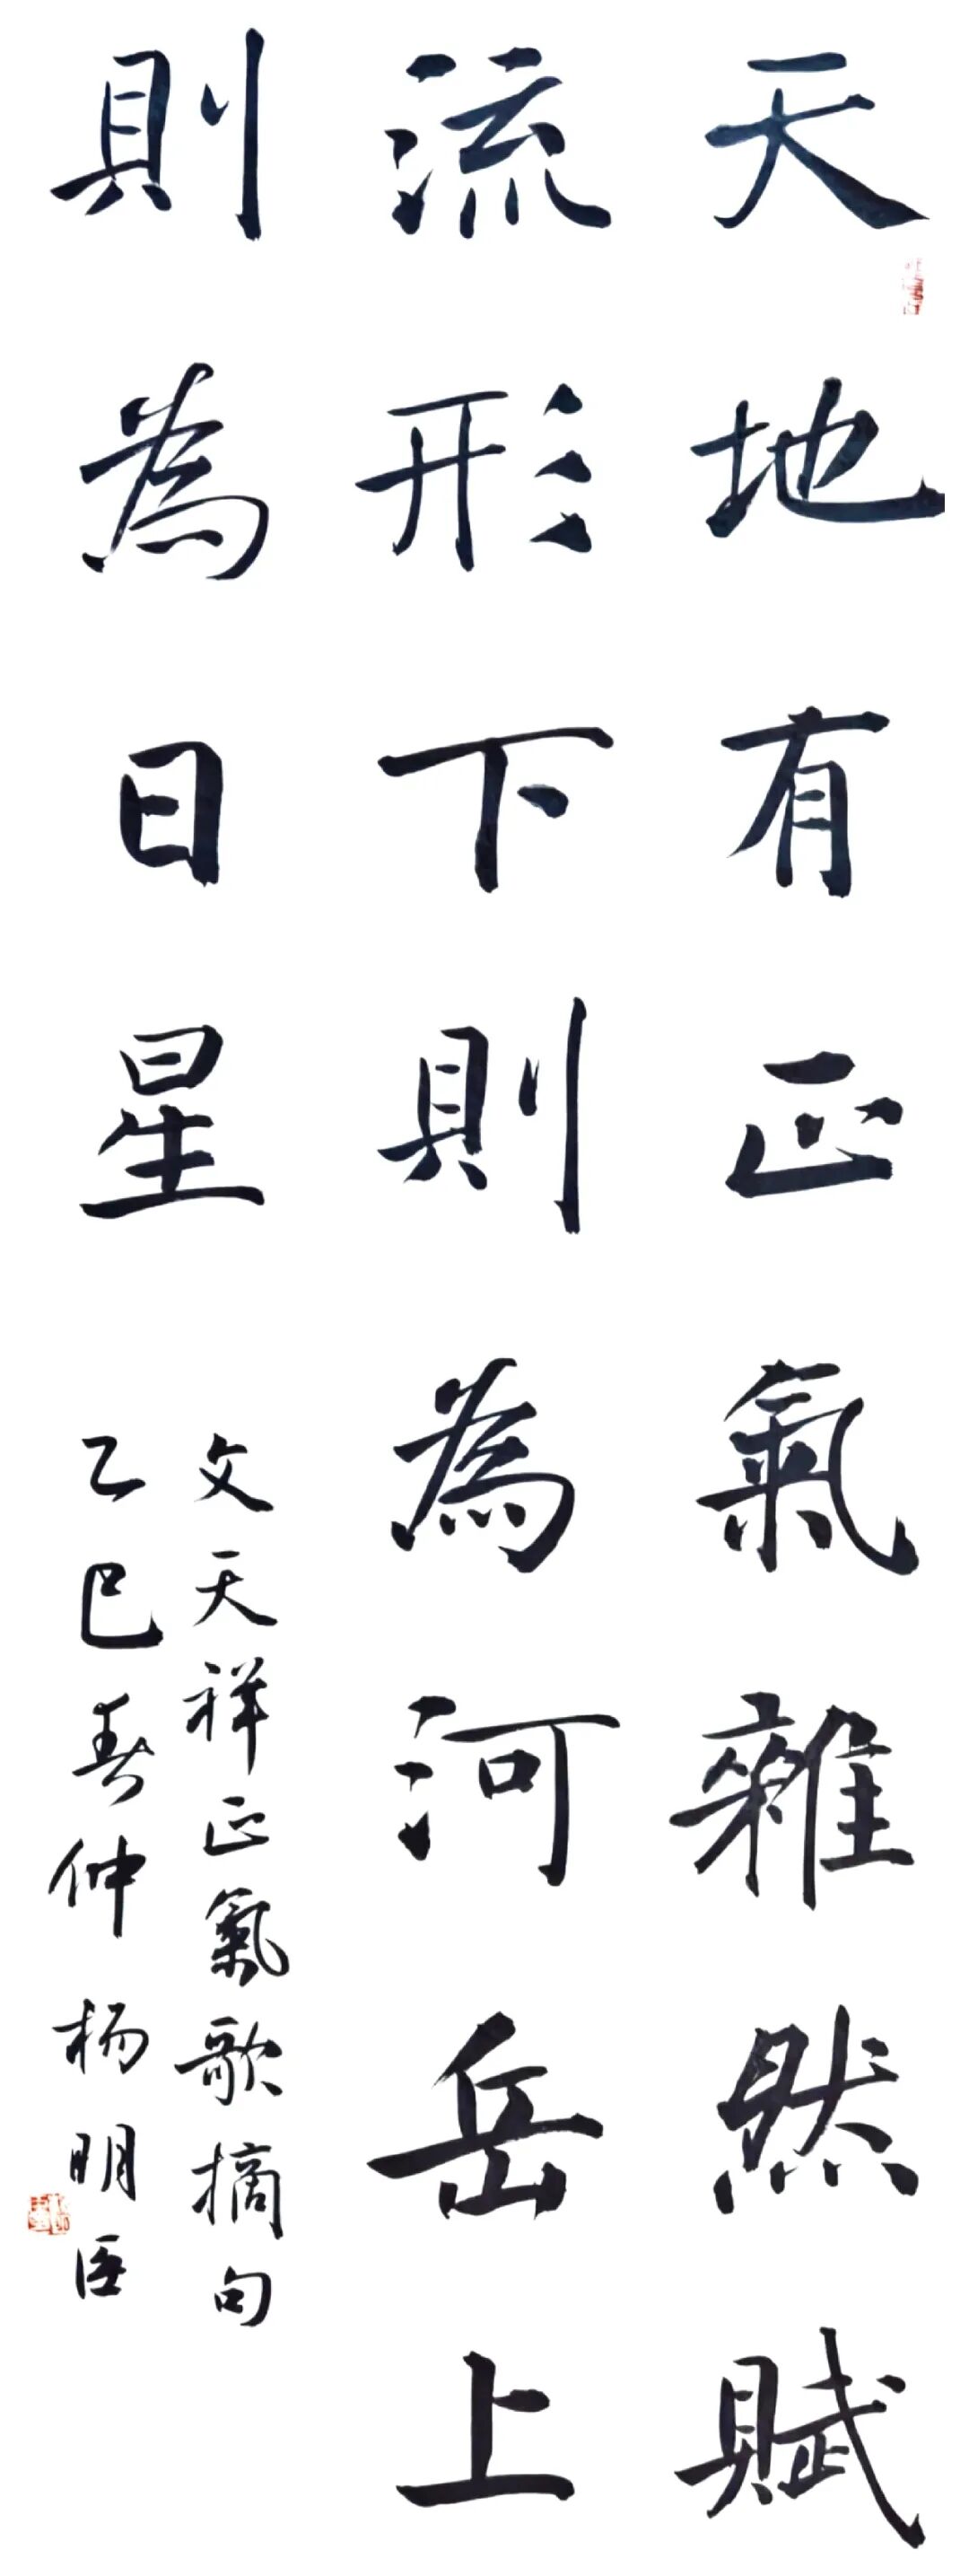 天地有正氣雜然賦
流形下則為河岳上
則為日星
文天祥正氣歌摘句
乙巳春仲杨明臣